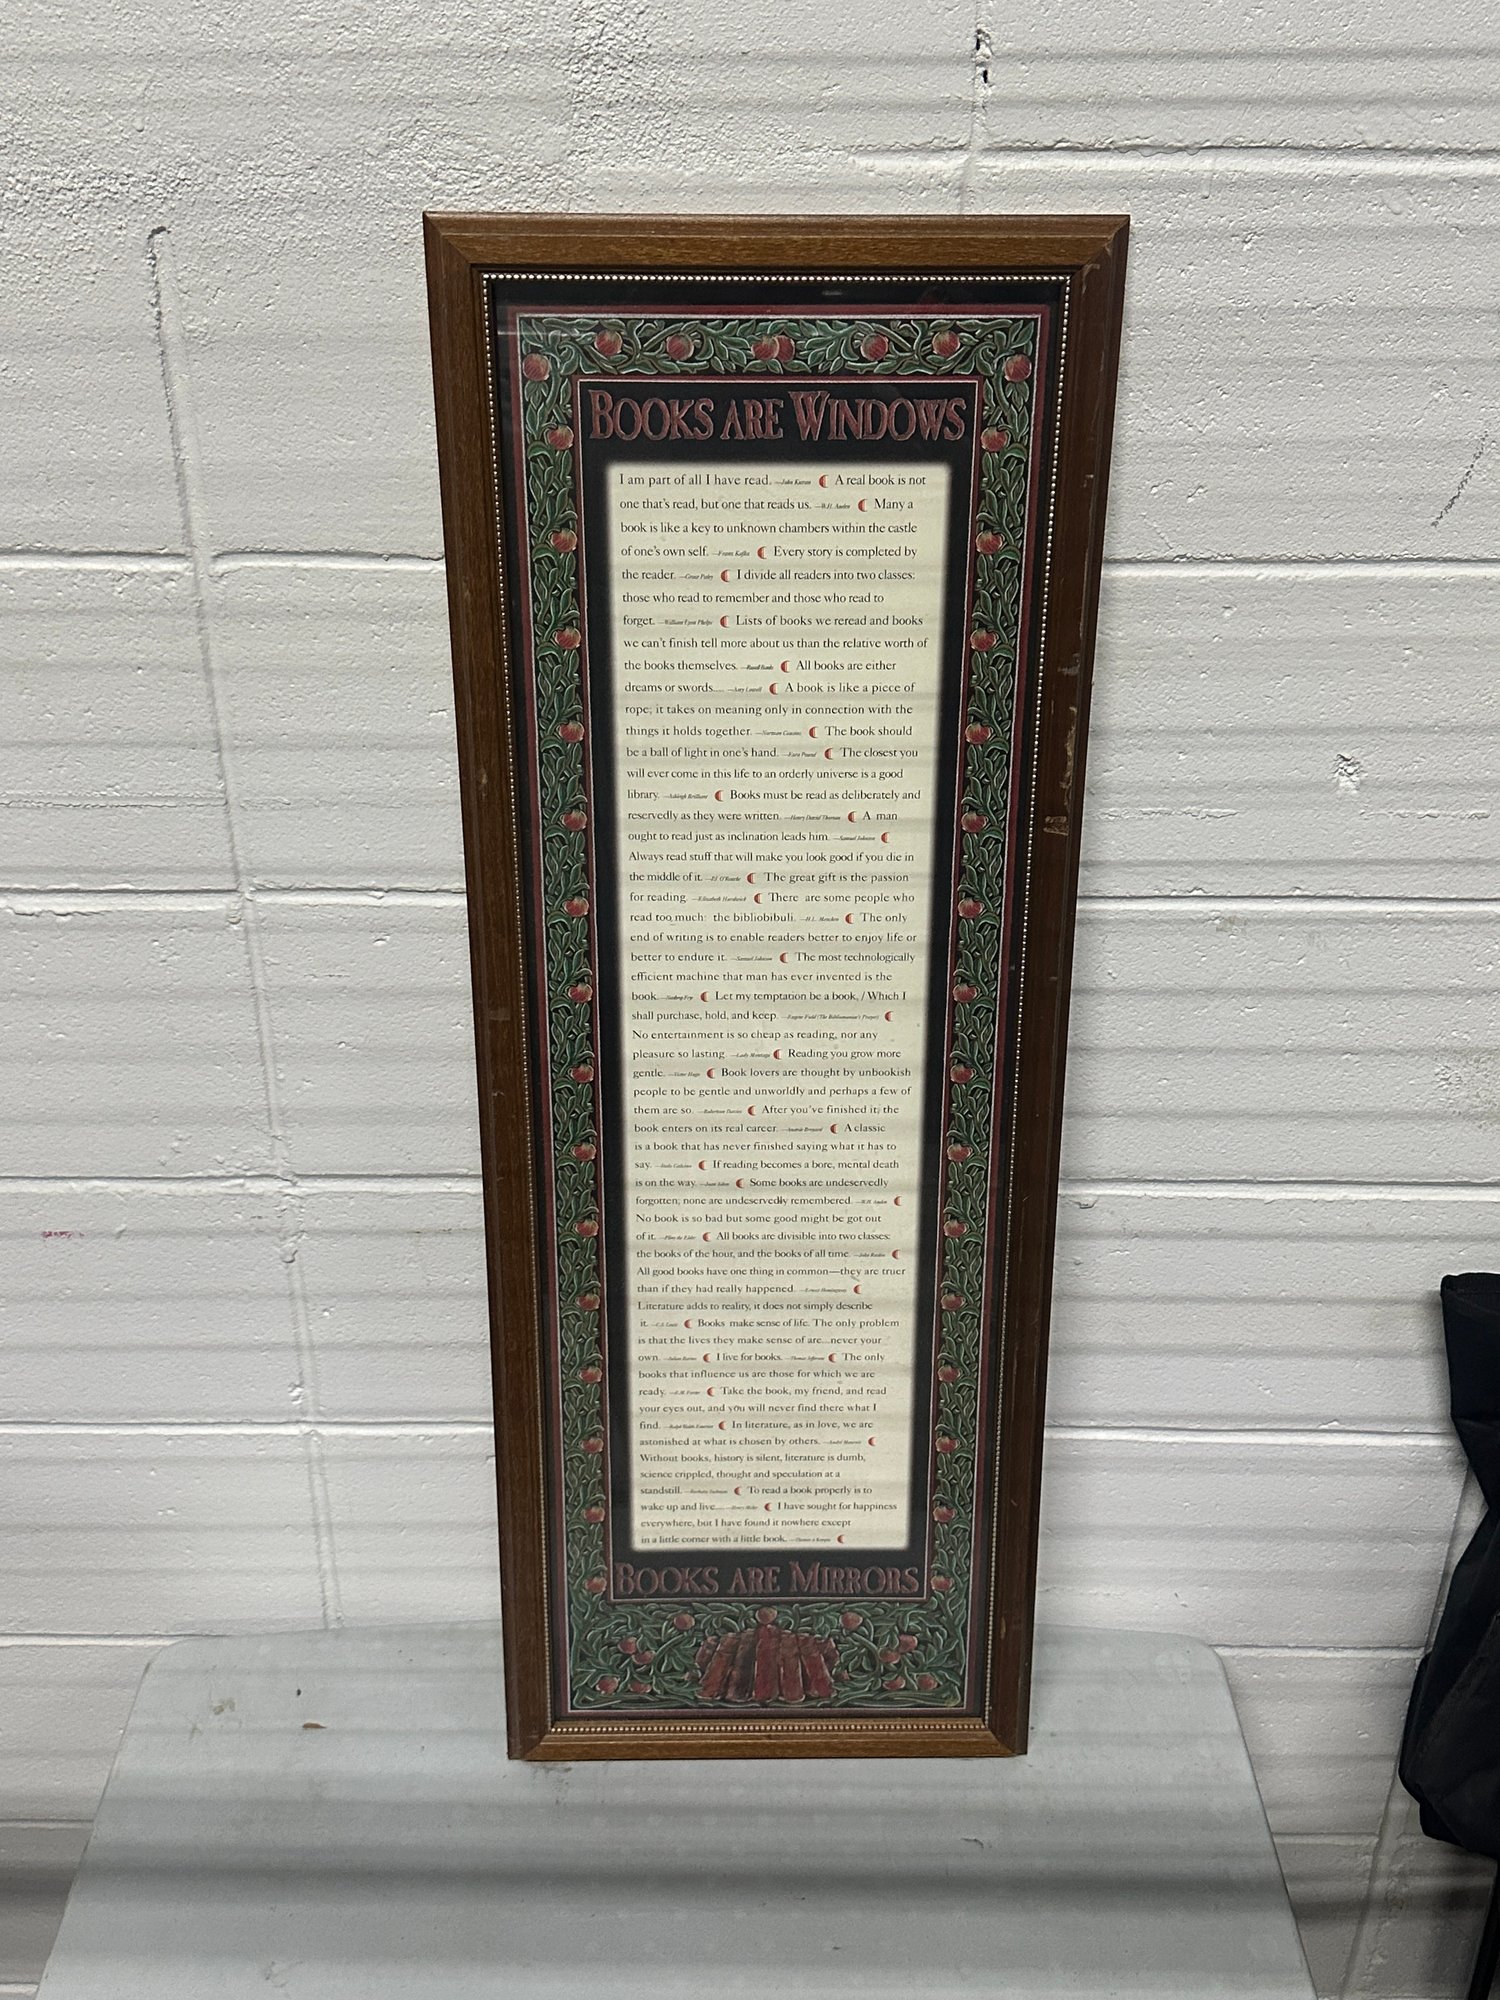 BOOKS ARE WINDOWS
I am part of all I have read. —John Kieran A real book is not
one that's read, but one that reads us. —W.H. Auden Many a
book is like a key to unknown chambers within the castle
of one's own self. —Franz Kafka Every story is completed by
the reader. —Grace Paley I divide all readers into two classes:
those who read to remember and those who read to
forget. —William Lyon Phelps Lists of books we reread and books
we can't finish tell more about us than the relative worth of
the books themselves. —Russell Banks All books are either
dreams or swords.... —Amy Lowell A book is like a piece of
rope; it takes on meaning only in connection with the
things it holds together. —Norman Cousins The book should
be a ball of light in one's hand. —Ezra Pound The closest you
will ever come in this life to an orderly universe is a good
library. —Ashleigh Brilliant Books must be read as deliberately and
reservedly as they were written. —Henry David Thoreau A man
ought to read just as inclination leads him. —Samuel Johnson
Always read stuff that will make you look good if you die in
the middle of it. —P.J. O'Rourke The great gift is the passion
for reading. —Elizabeth Hardwick There are some people who
read too much: the bibliobibuli. —H.L. Mencken The only
end of writing is to enable readers better to enjoy life or
better to endure it. —Samuel Johnson The most technologically
efficient machine that man has ever invented is the
book. —Northrop Frye Let my temptation be a book, / Which I
shall purchase, hold, and keep. —Eugene Field (The Bibliomaniac's Prayer)
No entertainment is so cheap as reading, nor any
pleasure so lasting. —Lady Montagu Reading you grow more
gentle. —Victor Hugo Book lovers are thought by unbookish
people to be gentle and unworldly and perhaps a few of
them are so. —Robertson Davies After you've finished it, the
book enters on its real career. A classic
is a book that has never finished saying what it has to
say. —Italo Calvino If reading becomes a bore, mental death
is on the way. Some books are undeservedly
forgotten; none are undeservedly remembered. —W.H. Auden
No book is so bad but some good might be got out
of it. —Pliny the Elder All books are divisible into two classes:
the books of the hour, and the books of all time. —John Ruskin
All good books have one thing in common—they are truer
than if they had really happened. —Ernest Hemingway
Literature adds to reality, it does not simply describe
it. —C.S. Lewis Books make sense of life. The only problem
is that the lives they make sense of are...never your
own. —Julian Barnes I live for books. —Thomas Jefferson The only
books that influence us are those for which we are
ready. —E.M. Forster Take the book, my friend, and read
your eyes out, and you will never find there what I
find. —Ralph Waldo Emerson In literature, as in love, we are
astonished at what is chosen by others. —André Maurois
Without books, history is silent, literature is dumb,
science crippled, thought and speculation at a
standstill. —Barbara Tuchman To read a book properly is to
wake up and live.... —Henry Miller I have sought for happiness
everywhere, but I have found it nowhere except
in a little corner with a little book. —Thomas à Kempis
BOOKS ARE MIRRORS